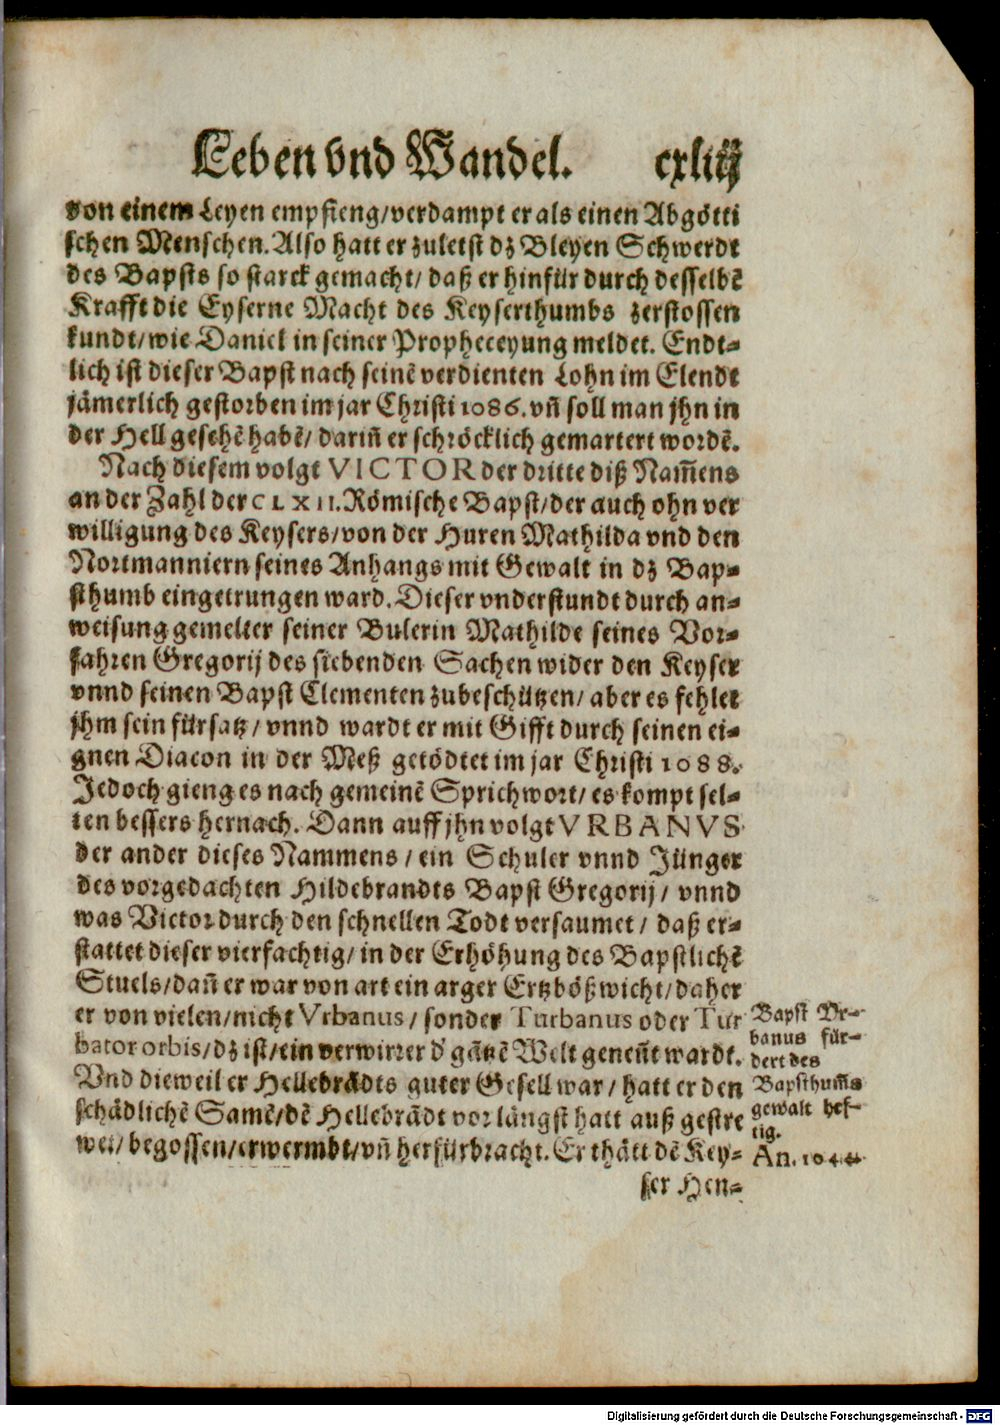 Leben vnd Wandel. cxliij
von einem Leyen empfieng/verdampt er als einen Abgötti
schen Menschen. Also hatt er zuletst dz Bleyen Schwerdt
des Bapsts so starck gemacht/ daß er hinfür durch desselbē
Krafft die Eyserne Macht des Keyserthumbs zerstossen
kundt/wie Daniel in seiner Propheceyung meldet. Endt-
lich ist dieser Bapst nach seinē verdienten Lohn im Elendt
jämerlich gestorben im jar Christi 1086. vñ soll man jhn in
der Hell gesehē habē/ dariñ er schröcklich gemartert wordē.
Nach diesem volgt VICTOR der dritte diß Nam̄ens
an der Zahl der CLXII. Römische Bapst/der auch ohn ver
willigung des Keysers/von der Huren Mathilda vnd den
Nortmanniern seines Anhangs mit Gewalt in dz Bap-
sthumb eingetrungen ward. Dieser vnderstundt durch an-
weisung gemelter seiner Bulerin Mathilde seines Vor-
fahren Gregorij des siebenden Sachen wider den Keyser
vnnd seinen Bapst Clementen zubeschützen/ aber es fehlet
jhm sein fürsatz/ vnnd wardt er mit Gifft durch seinen ei-
gnen Diacon in der Meß getödtet im jar Christi 1088.
Jedoch gieng es nach gemeinē Sprichwort/ es kompt sel-
ten bessers hernach. Dann auff jhn volgt VRBANVS
der ander dieses Nammens/ ein Schuler vnnd Jünger
des vorgedachten Hildebrandts Bapst Gregorij/ vnnd
was Victor durch den schnellen Todt versaumet/ daß er-
stattet dieser vierfachtig/ in der Erhöhung des Bapstlichē
Stuels/dañ er war von art ein arger Ertzbößwicht/daher
er von vielen/nicht Vrbanus/ sonder Turbanus oder Tur
bator orbis/dz ist/ein verwirrer d' gātzē Welt geneñt wardt.
Vnd dieweil er Hellebrādts guter Gesell war/ hatt er den
schädlichē Samē/dē Hellebrādt vorlängst hatt auß gestre
wet/ begossen/erwermbt/vñ herfürbracht. Er thätt dē Key-
ser Hen-
Bapst Vr-
banus für-
dert des
Bapsthum̄s
gewalt hef-
tig.
An. 1044
Digitalisierung gefördert durch die Deutsche Forschungsgemeinschaft - DFG